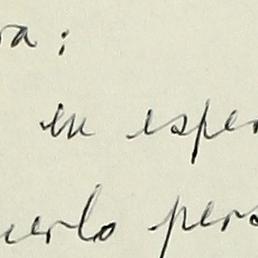 ra:
en esper
uerlo pers